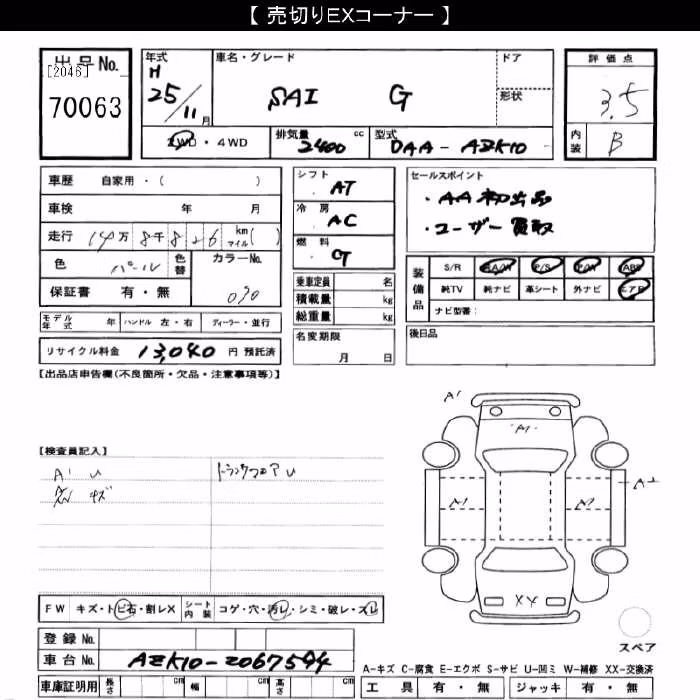 【 売切りEXコーナー 】
出品No. [2046] 70063
年式 H 25/11月
車名・グレード SAI G
ドア
形状
評価点 3.5
内装 B
2WD・4WD
排気量 2400 cc
型式 DAA-AZK10
車歴 自家用・( )
車検 年 月
走行 14万8千826 kmマイル( )
色 パール 色替
カラーNo. 070
保証書 有・無
シフト AT
冷房 AC
燃料 G
乗車定員 名
積載量 kg
総重量 kg
セールスポイント
・AA初出品
・ユーザー買取
装備品 S/R AA/W P/S P/W ABS
純TV 純ナビ 革シート 外ナビ エアB
ナビ型番:
モデル年式 年 ハンドル 左・右 ディーラー・並行
リサイクル料金 13,040 円 預託済
名変期限 月 日
後日品
【出品店申告欄(不良箇所・欠品・注意事項等)】
【検査員記入】
A' U トランクフロアU
キズ
A'
A1
A2
XX
FW キズ・トビ石・割レX シート内装 コゲ・穴・汚レ・シミ・破レ・スレ
登録No.
車台No. AZK10-2067594
スペア
A-キズ C-腐食 E-エクボ S-サビ U-凹ミ W-補修 XX-交換済
車庫証明用 長さ cm 幅 cm 高さ cm
工具 有・無 ジャッキ 有・無